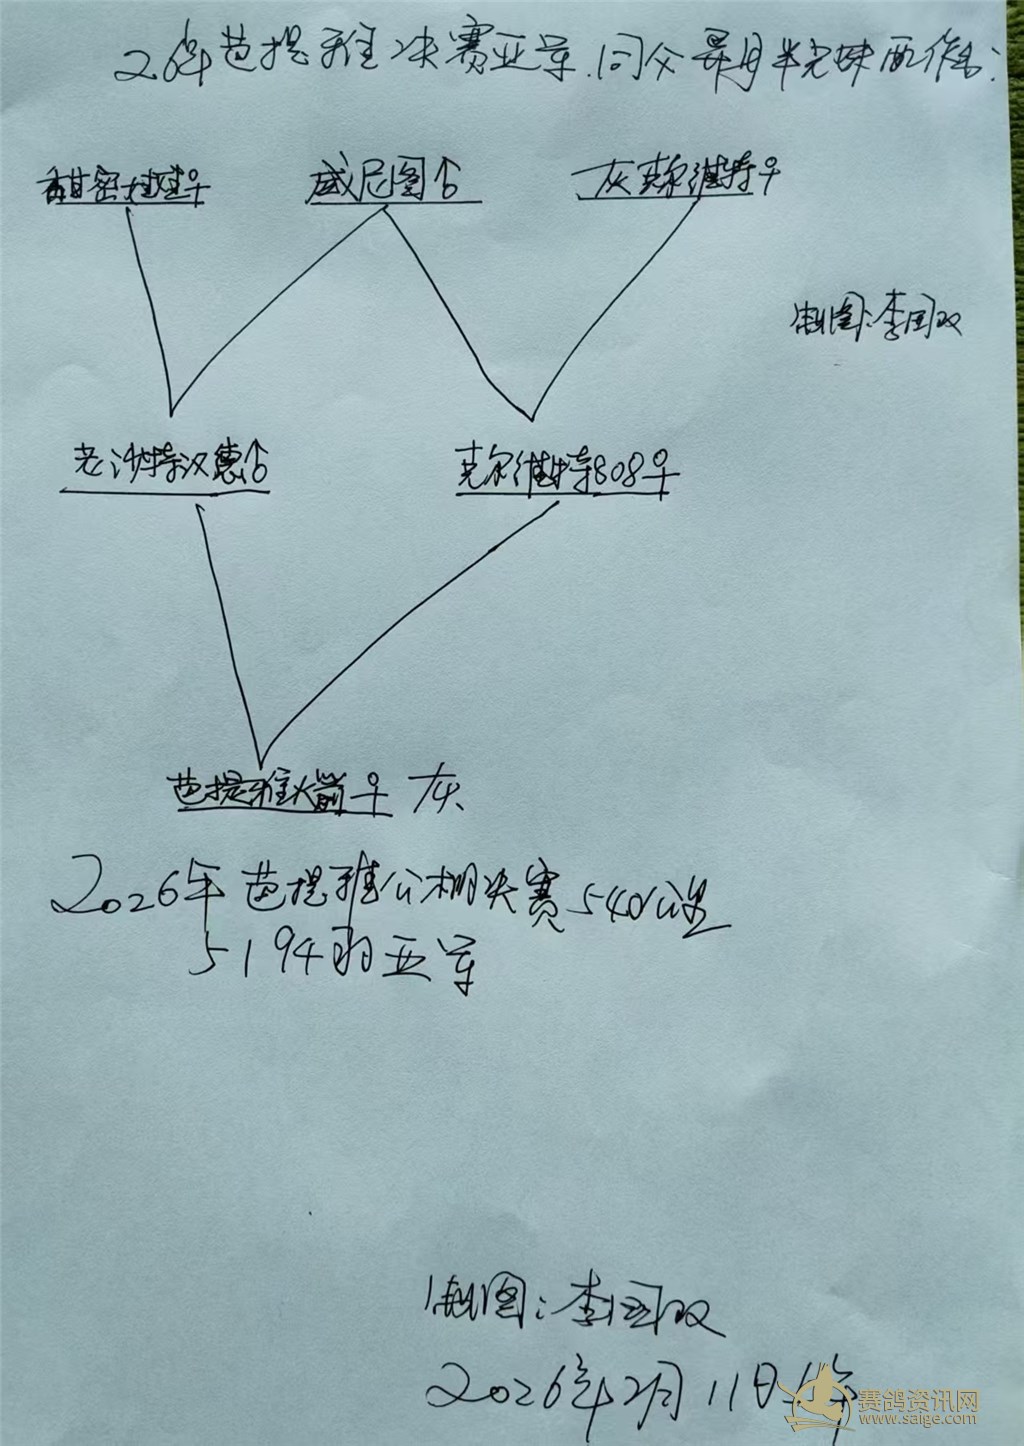 26年芭提雅决赛亚军.同父异母半兄妹配作出:
甜密娃娃♀ 威尼图♂ 灰克尔维特♀
制图:李国双
老沙特汉德♂ 克尔维特808♀
芭提雅火箭♀ 灰
2026年芭提雅公棚决赛540公里
5194羽亚军
制图:李国双
2026年2月11日作
赛鸽资讯网
www.saige.com